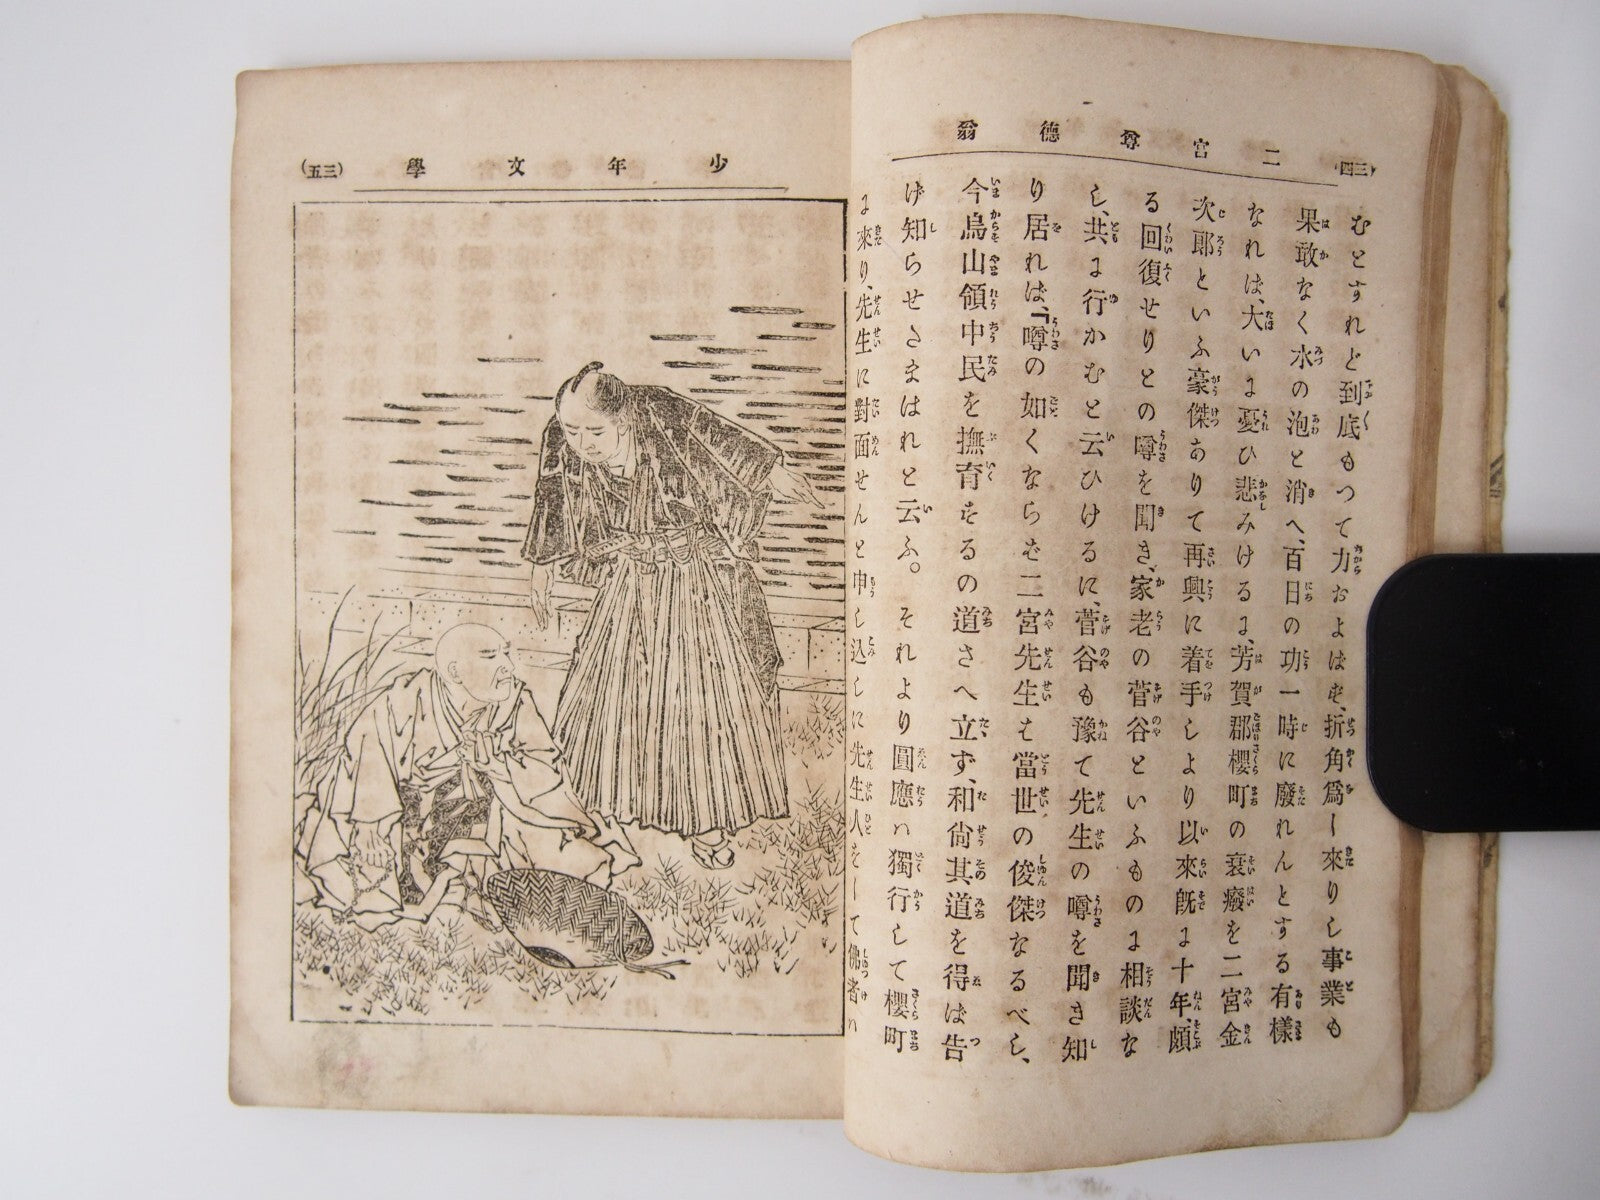 二宮尊德翁
(三四)
むとすれど到底もつて力およばず、折角爲し來りし事業も
果敢なく水の泡と消へ、百日の功一時に廢れんとする有樣
なれは、大いに憂ひ悲みけるに、芳賀郡櫻町の衰癈を二宮金
次郎といふ豪傑ありて再興に着手しより以來既に十年、頗
る回復せりとの噂を聞き、家老の菅谷といふものに相談な
し、共に行かむと云ひけるに、菅谷も豫て先生の噂を聞き知
り居れば、「噂の如くならむ二宮先生も當世の俊傑なるべし、
今烏山領中民を撫育するの道さへ立たず、和尙其道を得ば告
げ知らせさまはれと云ふ。それより圓應ハ獨行して櫻町
に來り、先生に對面せんと申し込しに先生人をして佛者ハ
少年文學
(三五)